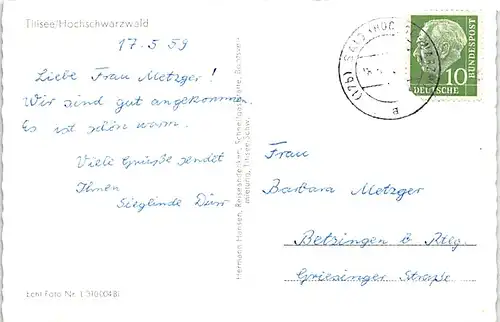 Titisee/Hochschwarzwald
17.5.59
Liebe Frau Metzger!
Wir sind gut angekommen.
Es ist schön warm.
Viele Grüße sendet
Ihnen
Sieglinde Dürr
Echt Foto Nr.
Hermann Hansen, Reiseandenken, Schneekugelexporte,
Titisee-Schw.
10
DEUTSCHE
BUNDESPOST
Frau
Barbara Metzger
Betzingen b Rtlg.
Griesinger Straße